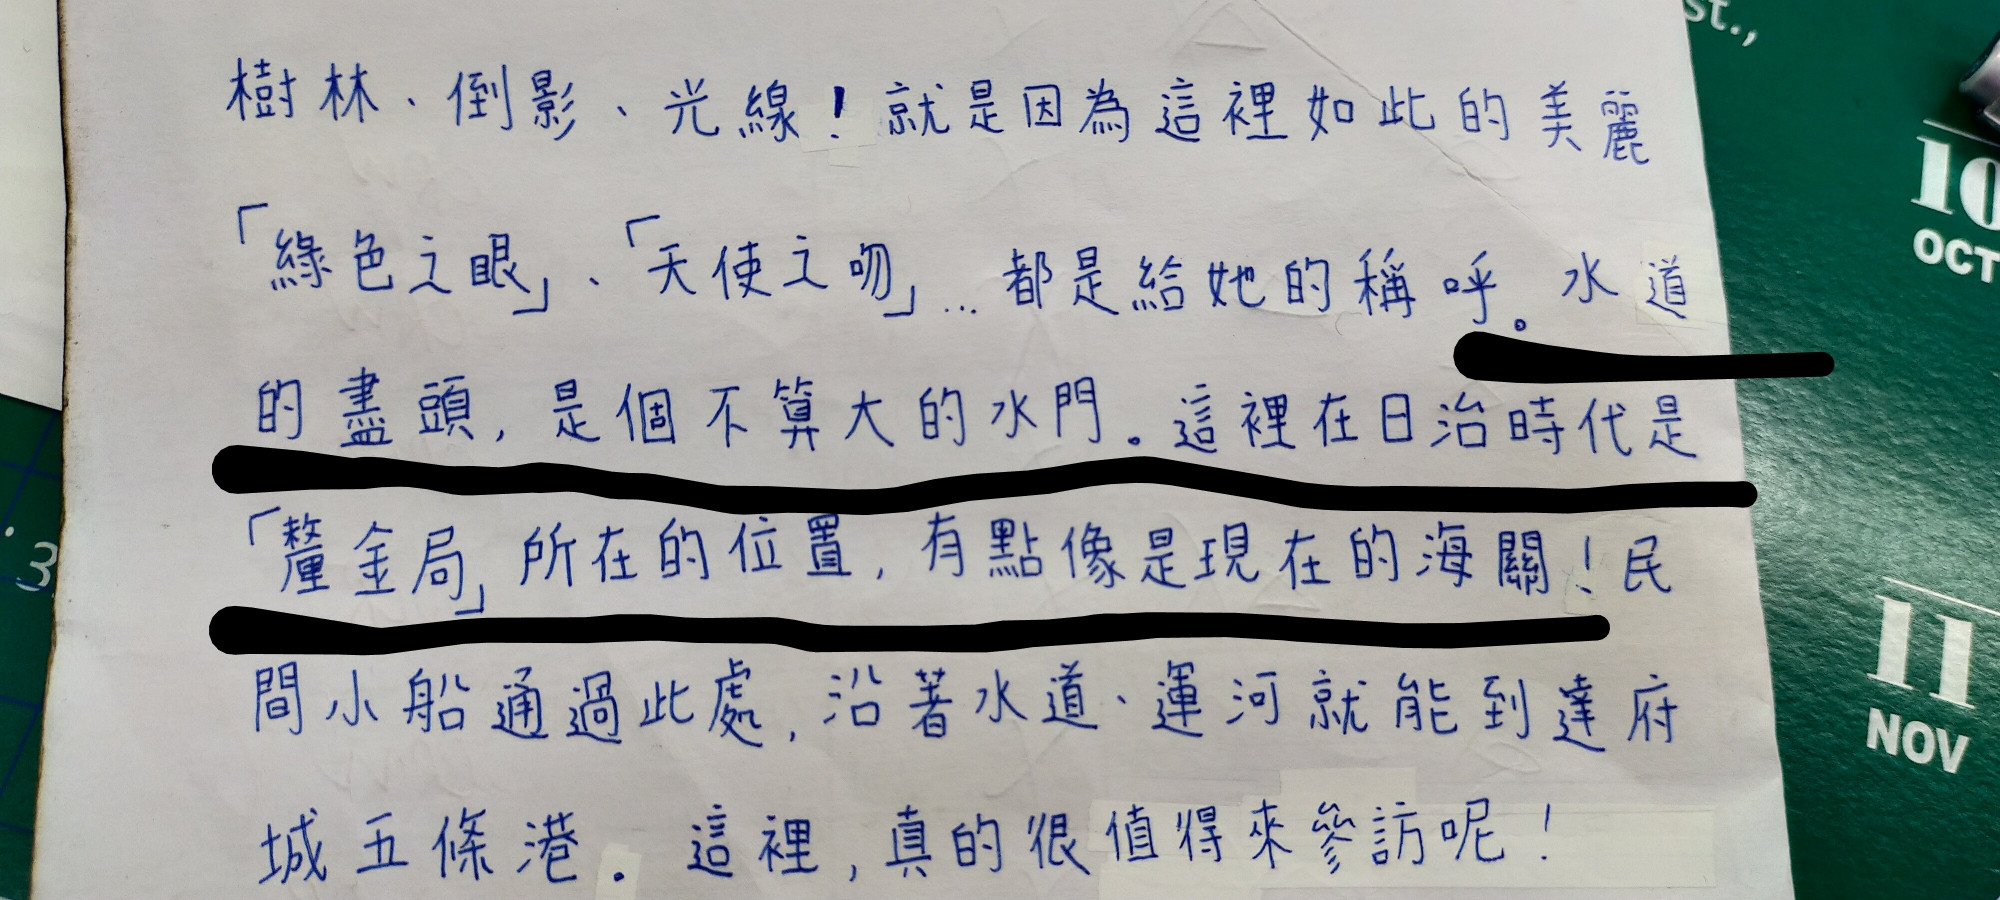 st.,
樹林、倒影、光線！就是因為這裡如此的美麗
「綠色之眼」、「天使之吻」…都是給她的稱呼。水道
的盡頭，是個不算大的水門。這裡在日治時代是
「釐金局」所在的位置，有點像是現在的海關！民
間小船通過此處，沿著水道、運河就能到達府
城五條港。這裡，真的很值得來參訪呢！
10
OCT
11
NOV
3